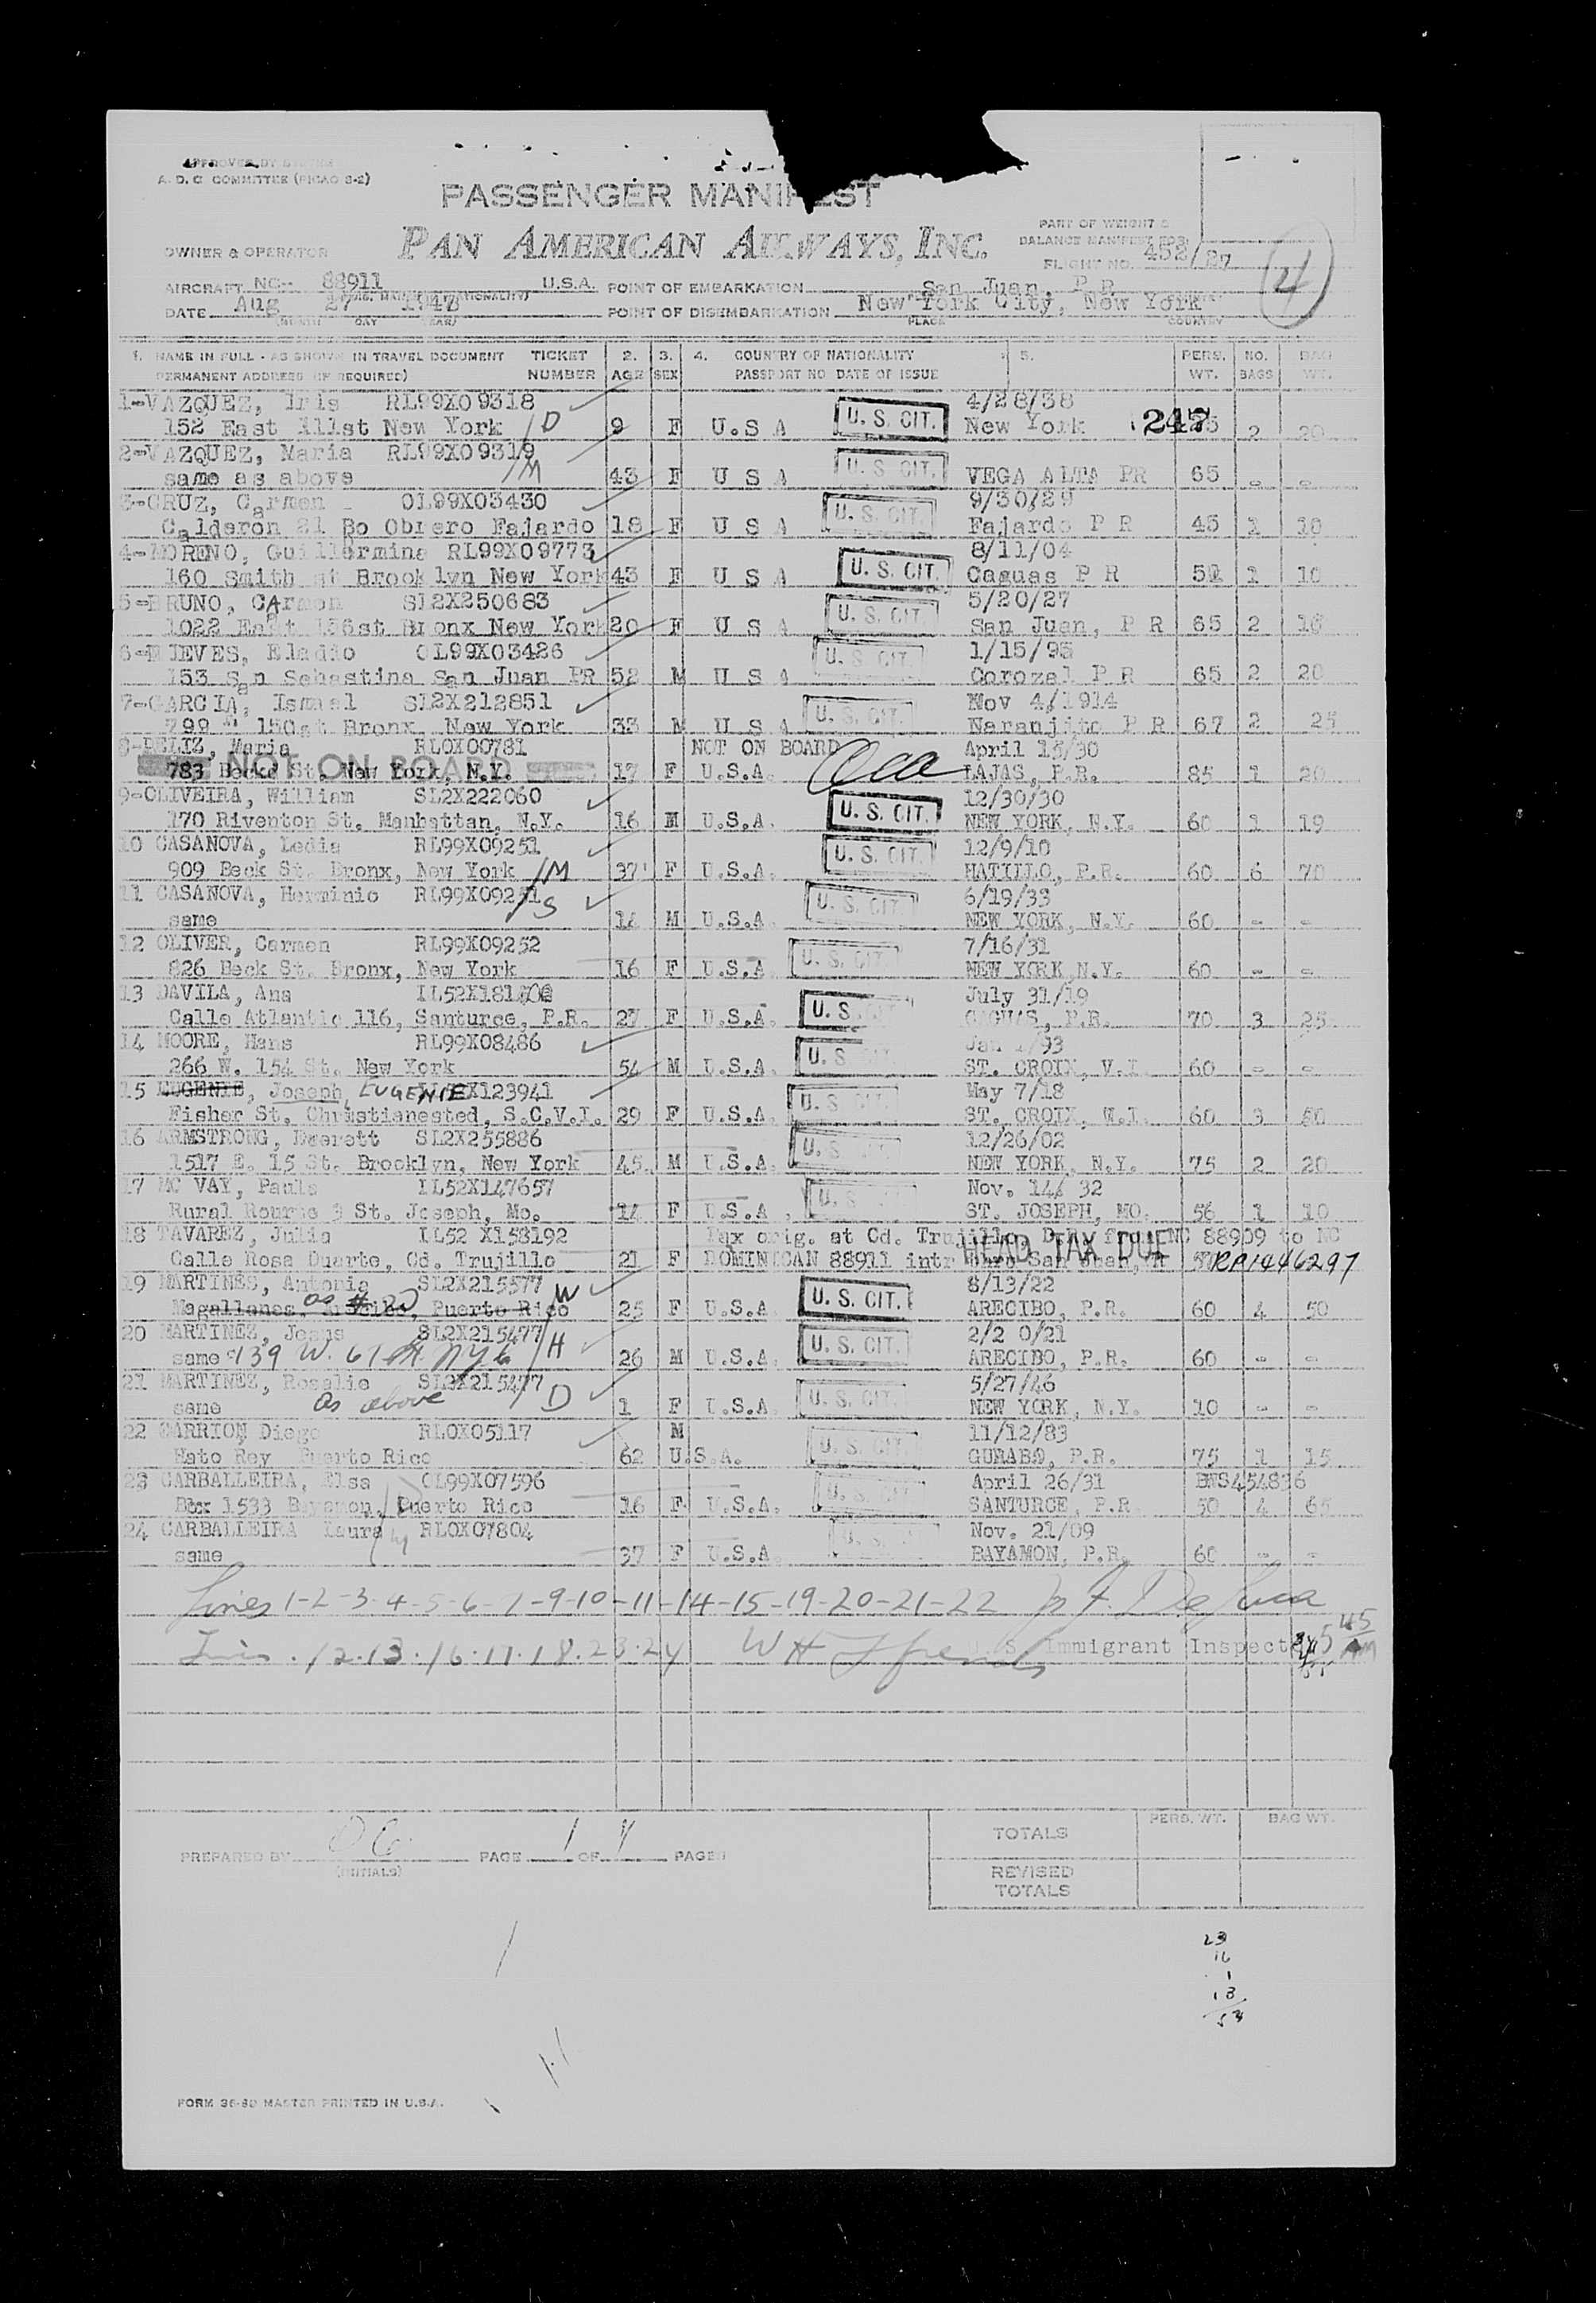 A. D. C. COMMITTEE (PICAO S-2)
PASSENGER MANIFEST
PAN AMERICAN AIRWAYS, INC.
OWNER & OPERATOR
PART OF WEIGHT &
BALANCE MANIFEST FOR
FLIGHT NO. 452/27
4
AIRCRAFT NC- 88911 U.S.A. POINT OF EMBARKATION San Juan, P R
DATE Aug 27 1947 POINT OF DISEMBARKATION New York City, New York
(MONTH DAY YEAR) PLACE COUNTRY
1. NAME IN FULL - AS SHOWN IN TRAVEL DOCUMENT TICKET 2. 3. 4. COUNTRY OF NATIONALITY 5. PERS. NO. BAG
PERMANENT ADDRESS (IF REQUIRED) NUMBER AGE SEX PASSPORT NO DATE OF ISSUE WT. BAGS WT.
1-VAZQUEZ, Iris RL99X09318 4/28/38
152 East 111st New York /D 9 F U.S A U. S. CIT. New York 247 2 20
2-VAZQUEZ, Maria RL99X09319
same as above /M 43 F U S A U. S. CIT. VEGA ALTA PR 65 - -
3-CRUZ, Carmen OL99X03430 9/30/29
Calderon 21 Bo Obrero Fajardo 18 F U S A U. S. CIT. Fajardo P R 45 1 10
4-MORENO, Guillermina RL99X09773 8/11/04
160 Smith st Brooklyn New York 43 F U S A U. S. CIT. Caguas P R 1 10
5-BRUNO, CArmen SL2X250683 5/20/27
1022 East 156st Bronx New York 20 F U S A U. S. CIT. San Juan, P R 65 2 10
6-NIEVES, Eladio OL99X03426 1/15/95
153 San Sebastina San Juan PR 52 M U S A U. S. CIT. Corozal P R 65 2 20
7-GARCIA, Ismael SL2X212851 Nov 4/1914
799 150st Bronx, New York 33 M U S A U. S. CIT. Naranjito P R 67 2 25
8-DELIZ, Maria RLOX00781 NOT ON BOARD April 15/30
NOT ON BOARD
783 Becke St. New York, N.Y. 17 F U.S.A. LAJAS, P.R. 85 1 20
9-OLIVEIRA, William SL2X222060 12/30/30
170 Riventon St. Manhattan, N.Y. 16 M U.S.A. U. S. CIT. NEW YORK, N.Y. 60 1 19
10 CASANOVA, Ledia RL99X09251 12/9/10
909 Beck St. Bronx, New York /M 37 F U.S.A. U. S. CIT. HATILLO, P.R. 60 6 70
11 CASANOVA, Herminio RL99X09251 6/19/33
same /S 14 M U.S.A. U. S. CIT. NEW YORK, N.Y. 60 - -
12 OLIVER, Carmen RL99X09252 7/16/31
826 Beck St. Bronx, New York 16 F U.S.A. U. S. CIT. NEW YORK, N.Y. 60 - -
13 DAVILA, Ana July 31/19
Calle Atlantic 116, Santurce, P.R. 27 F U.S.A. U. S. CAGUAS, P.R. 70 3 25
14 MOORE, Hans RL99X08486 Jan /93
266 W. 154 St. New York 54 M U.S.A. U. S. ST. CROIX, V.I. 60 - -
15 EUGENIE, Joseph, EUGENIE X123941 May 7/18
Fisher St. Christiansted, S.C.V.I. 29 F U.S.A. U. S. ST. CROIX, W.I. 60 3 50
16 ARMSTRONG, Everett SL2X255886 12/26/02
1517 E. 15 St. Brooklyn, New York 45 M U.S.A. U. S. NEW YORK, N.Y. 75 2 20
17 MC VAY, Paula IL52X147657 Nov. 14/ 32
Rural Rourte 3 St. Joseph, Mo. 14 F U.S.A. U. S. ST. JOSEPH, MO. 56 1 10
18 TAVAREZ, Julia IL52 X158192 Pax orig. at Cd. Trujillo, D.R. from NC 88909 to NC
Calle Rosa Duarte, Cd. Trujillo 21 F DOMINICAN 88911 HEAD TAX DUE RP1446297
19 MARTINES, Antonia SL2X215577 /W 8/13/22
Magallanes, as # 20 Puerto Rico 25 F U.S.A. U. S. CIT. ARECIBO, P.R. 60 4 50
20 MARTINEZ, Jesus SL2X215477 /H 2/2 0/21
same 139 W. 61 St. NYC 26 M U.S.A. U. S. CIT. ARECIBO, P.R. 60 - -
21 MARTINEZ, Rosalie SL2X215477 /D 5/27/46
same as above 1 F U.S.A. U. S. CIT. NEW YORK, N.Y. 10 - -
22 CARRION, Diego RLOX05117 M 11/12/83
Hato Rey Puerto Rico 62 U.S.A. U. S. CIT. GURABO, P.R. 75 1 15
23 CARBALLEIRA, Elsa OL99X07596 April 26/31 BWS454836
Box 1533 Bayamon, Puerto Rico 16 F U.S.A. U. S. CIT. SANTURCE, P.R. 50 4 65
24 CARBALLEIRA Laura RLOX07804 Nov. 21/09
same 37 F U.S.A. U. S. BAYAMON, P.R. 60 - -
Lines 1-2-3-4-5-6-7-9-10-11-14-15-19-20-21-22
Lines 12.13.16.17.18.23.24 U. S. Immigrant Inspector
PREPARED BY PAGE 1 OF 1 PAGES
(INITIALS)
PERS. WT. BAG WT.
TOTALS
REVISED
TOTALS
23
16
1
13
FORM 36-8D MASTER PRINTED IN U.S.A.